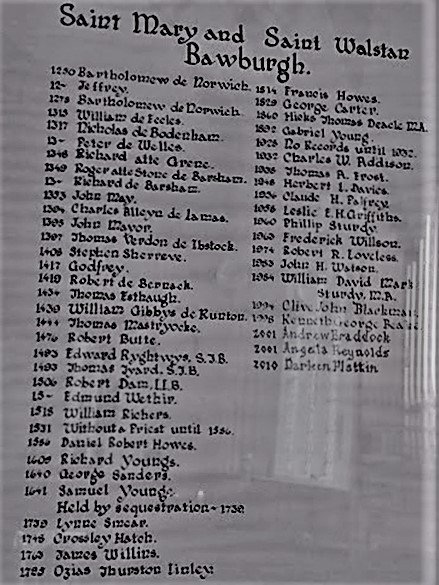 Saint Mary and Saint Walstan
Bawburgh.
1250 Bartholomew de Norwich.
12~ Jeffrey.
1278 Bartholomew de Norwich.
1313 William de Eccles.
1317 Nicholas de Bodenham.
13~ Peter de Welles.
1348 Richard atte Grene.
1349 Roger atte Stone de Barsham.
13~ Richard de Barsham.
1393 John May.
1394 Charles Alleyn de Lamas.
1395 John Mayor.
1397 Thomas Verdon de Ibstock.
1408 Stephen Sherreve.
1417 Godfrey.
1419 Robert de Bernack.
1434 Thomas Esthaugh.
1439 William Gibbys de Runton.
1444 Thomas Mastryocke.
1476 Robert Butte.
1493 Edward Ryghtwys. S.J.B.
1493 Thomas Lyard. S.J.B.
1506 Robert Dam. LL.B.
15~ Edmund Wethir.
1518 William Richers.
1531 Without a Priest until 1556.
1556 Daniel Robert Howes.
1609 Richard Youngs.
1640 George Sanders.
1641 Samuel Young.
Held by sequestration ~ 1739
1739 Lynne Smear.
1748 Crossley Hatch.
1763 James Willins.
1785 Ozias Thurston Linley.
1814 Francis Howes.
1829 George Carter.
1840 Hicks Thomas Deacle M.A.
1892 Gabriel Young.
1928 No Records until 1932.
1932 Charles W. Addison.
1938 Thomas A. Frost.
1948 Herbert L. Davies.
1954 Claude H. Palfrey.
1958 Leslie E.H. Griffiths.
1960 Phillip Sturdy.
1969 Frederick Willson.
1974 Robert R. Loveless.
1983 John H. Watson.
1984 William David Mark
Sturdy. M.A.
1994 Clive John Blackman.
1998 Kenneth George
2001 Andrew Braddock
2001 Angela Reynolds
2010 Darleen Plattin